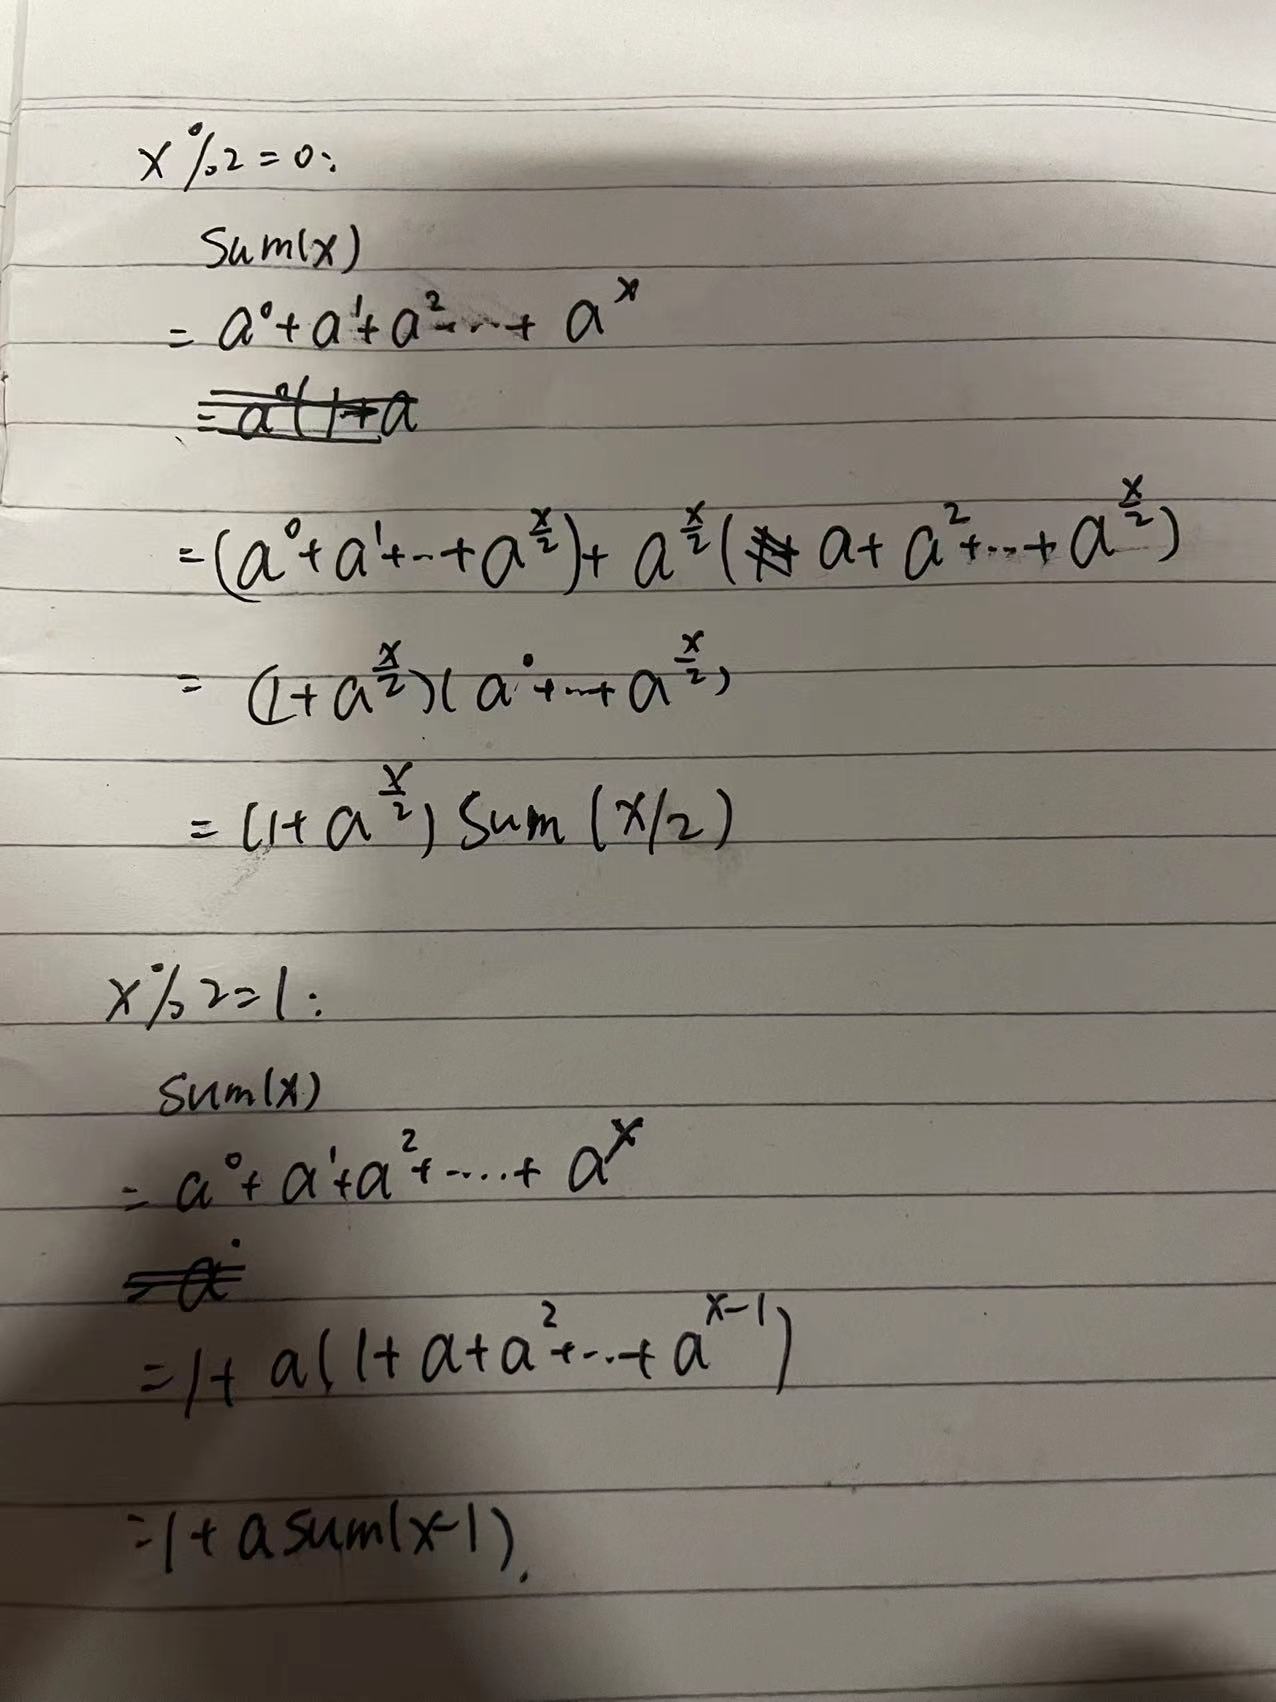 x%2=0:
Sum(x)
= a⁰+a¹+a²+...+ a^x
= a⁰(1+a
=(a⁰+a¹+...+a^(x/2))+ a^(x/2)( a+a²+...+a^(x/2))
= (1+a^(x/2))(a⁰+...+a^(x/2))
= (1+a^(x/2)) Sum (x/2)
x%2=1:
Sum(x)
= a⁰+a¹+a²+....+ a^x
= a⁰
=1+ a(1+a+a²+...+a^(x-1))
=1+a sum(x-1).